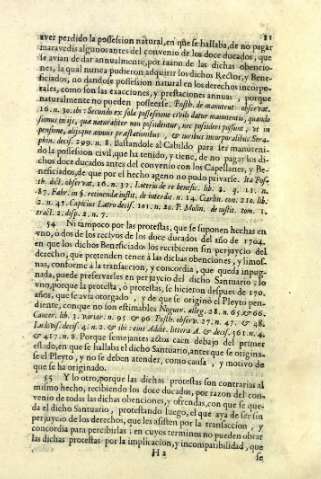 31
aver perdido la possession natural, en que se hallaba, de no pagar
maravedis algunos antes del convenio de los doce ducados, que
se avian de dar annualmente, por raino de las dichas obencio-
nes, la qual nunca pudieron adquirir los dichos Rector, y Bene-
ficiados, no dandose possession natural en los derechos incorpo-
rales, como son las exacciones, y prestaciones annuas, porque
naturalmente no pueden posseerse. Posth. de manuten. observat.
Secundo ex sola possessione civili datur manutentio, quando
sumus in ijs, quæ naturaliter non possidentur, nec possideri possunt, ut in
pensione, alijsque annuis præstationibus, & juribus incorporalibus. Sera-
phin. decis. 299. n. 8. Bastandole al Cabildo para ser manuteni-
do la possession civil, que ha tenido, y tiene, de no pagar los di-
chos doce ducados antes del convenio con los Capellanes, y Be-
neficiados, de que por el hecho ageno no pudo privarse. Ita Pos-
th. dict. observat. 26. n. 37. Lotterio de re benefic. lib. 2. q. 11. n.
87. Fabr. in §. retinendæ instit. de interdic. n. 14. Carlin. con. 210. lib.
2. n. 47. Capicius Latro decis. 101. n. 20. P. Molin. de justit. tom. 1.
tract. 2. disp. 2. n. 7.
54 Ni tampoco por las protestas, que se suponen hechas en
uno, o dos de los recivos de los doce ducados del año de 1704.
en que los dichos Beneficiados los recibieron sin perjuycio del
derecho, que pretenden tener à las dichas obenciones, y limos-
nas, conforme à la transaccion, y concordia, que queda impug-
nada, puede preservarles en perjuycio del dicho Santuario; lo
uno, porque la protesta, ò protestas, se hicieron despues de 190.
años, que se avia otorgado, y de que se originò el Pleyto pen-
diente, conque no son estimables Noguer. alleg. 28. n. 65. & 66.
Cancer. lib. 3. variar. n. 95 & 96. Posth. observ. 27. n. 47. & 48.
& 417. n. 8. Porque semejantes actos caen debajo del primer
estado, en que se hallaba el dicho Santuario, antes que se origina-
se el Pleyto, y no se deben atender, como causa, y motivo de
que se ha originado.
55 Y lo otro, porque las dichas protestas son contrarias al
mismo hecho, recibiendo los doce ducados, por razon del con-
venio de todas las dichas obenciones, y ofrendas, con que se que-
da el dicho Santuario, protestando luego, el que aya de ser sin
perjuycio de los derechos, que les assisten por la transaccion, y
concordia para percibirlas; en cuyos terminos no pueden obrar
las dichas protestas por la implicacion, y incompatibilidad, que
H 2 se